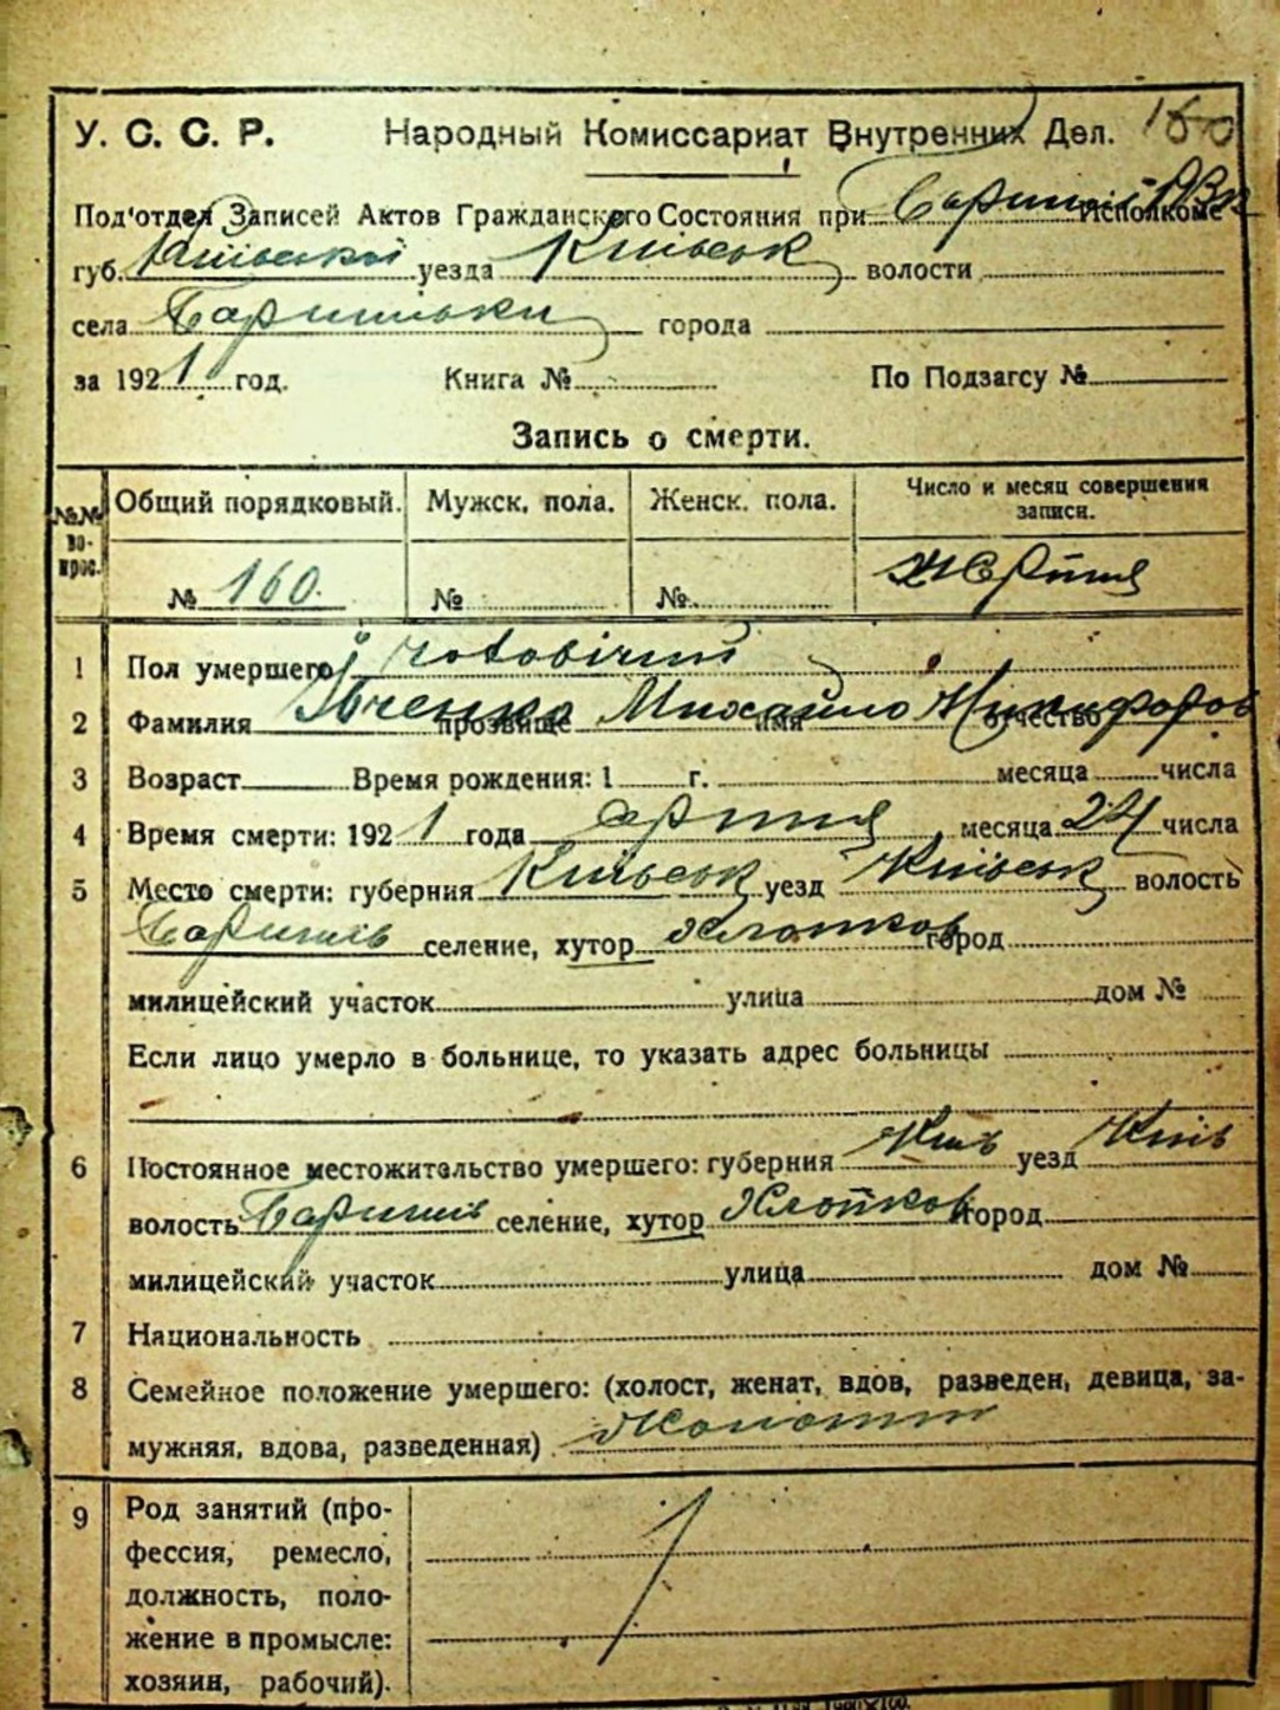 160
У. С. С. Р. Народный Комиссариат Внутренних Дел.
Под'отдел Записей Актов Гражданского Состояния при Исполкоме
губ. Київської уезда Київськ волости
села Баришівки города
за 1921 год. Книга № По Подзагсу №
Запись о смерти.
№№ во- прос. Общий порядковый. Мужск. пола. Женск. пола. Число и месяц совершения записи.
№ 160. № №
1 Пол умершего чоловічий
2 Фамилия Івченко прозвище Михайло имя Никифоров отчество
3 Возраст Время рождения: 1 г. месяца числа
4 Время смерти: 1921 года серпня месяца 24 числа
5 Место смерти: губерния Київськ уезд Київськ волость
Баришів селение, хутор Хлопков город
милицейский участок улица дом №
Если лицо умерло в больнице, то указать адрес больницы
6 Постоянное местожительство умершего: губерния Київ уезд Київ
волость Баришів селение, хутор Хлопков город
милицейский участок улица дом №
7 Национальность
8 Семейное положение умершего: (холост, женат, вдов, разведен, девица, за-
мужняя, вдова, разведенная)
9 Род занятий (про-
фессия, ремесло,
должность, поло-
жение в промысле:
хозяин, рабочий).